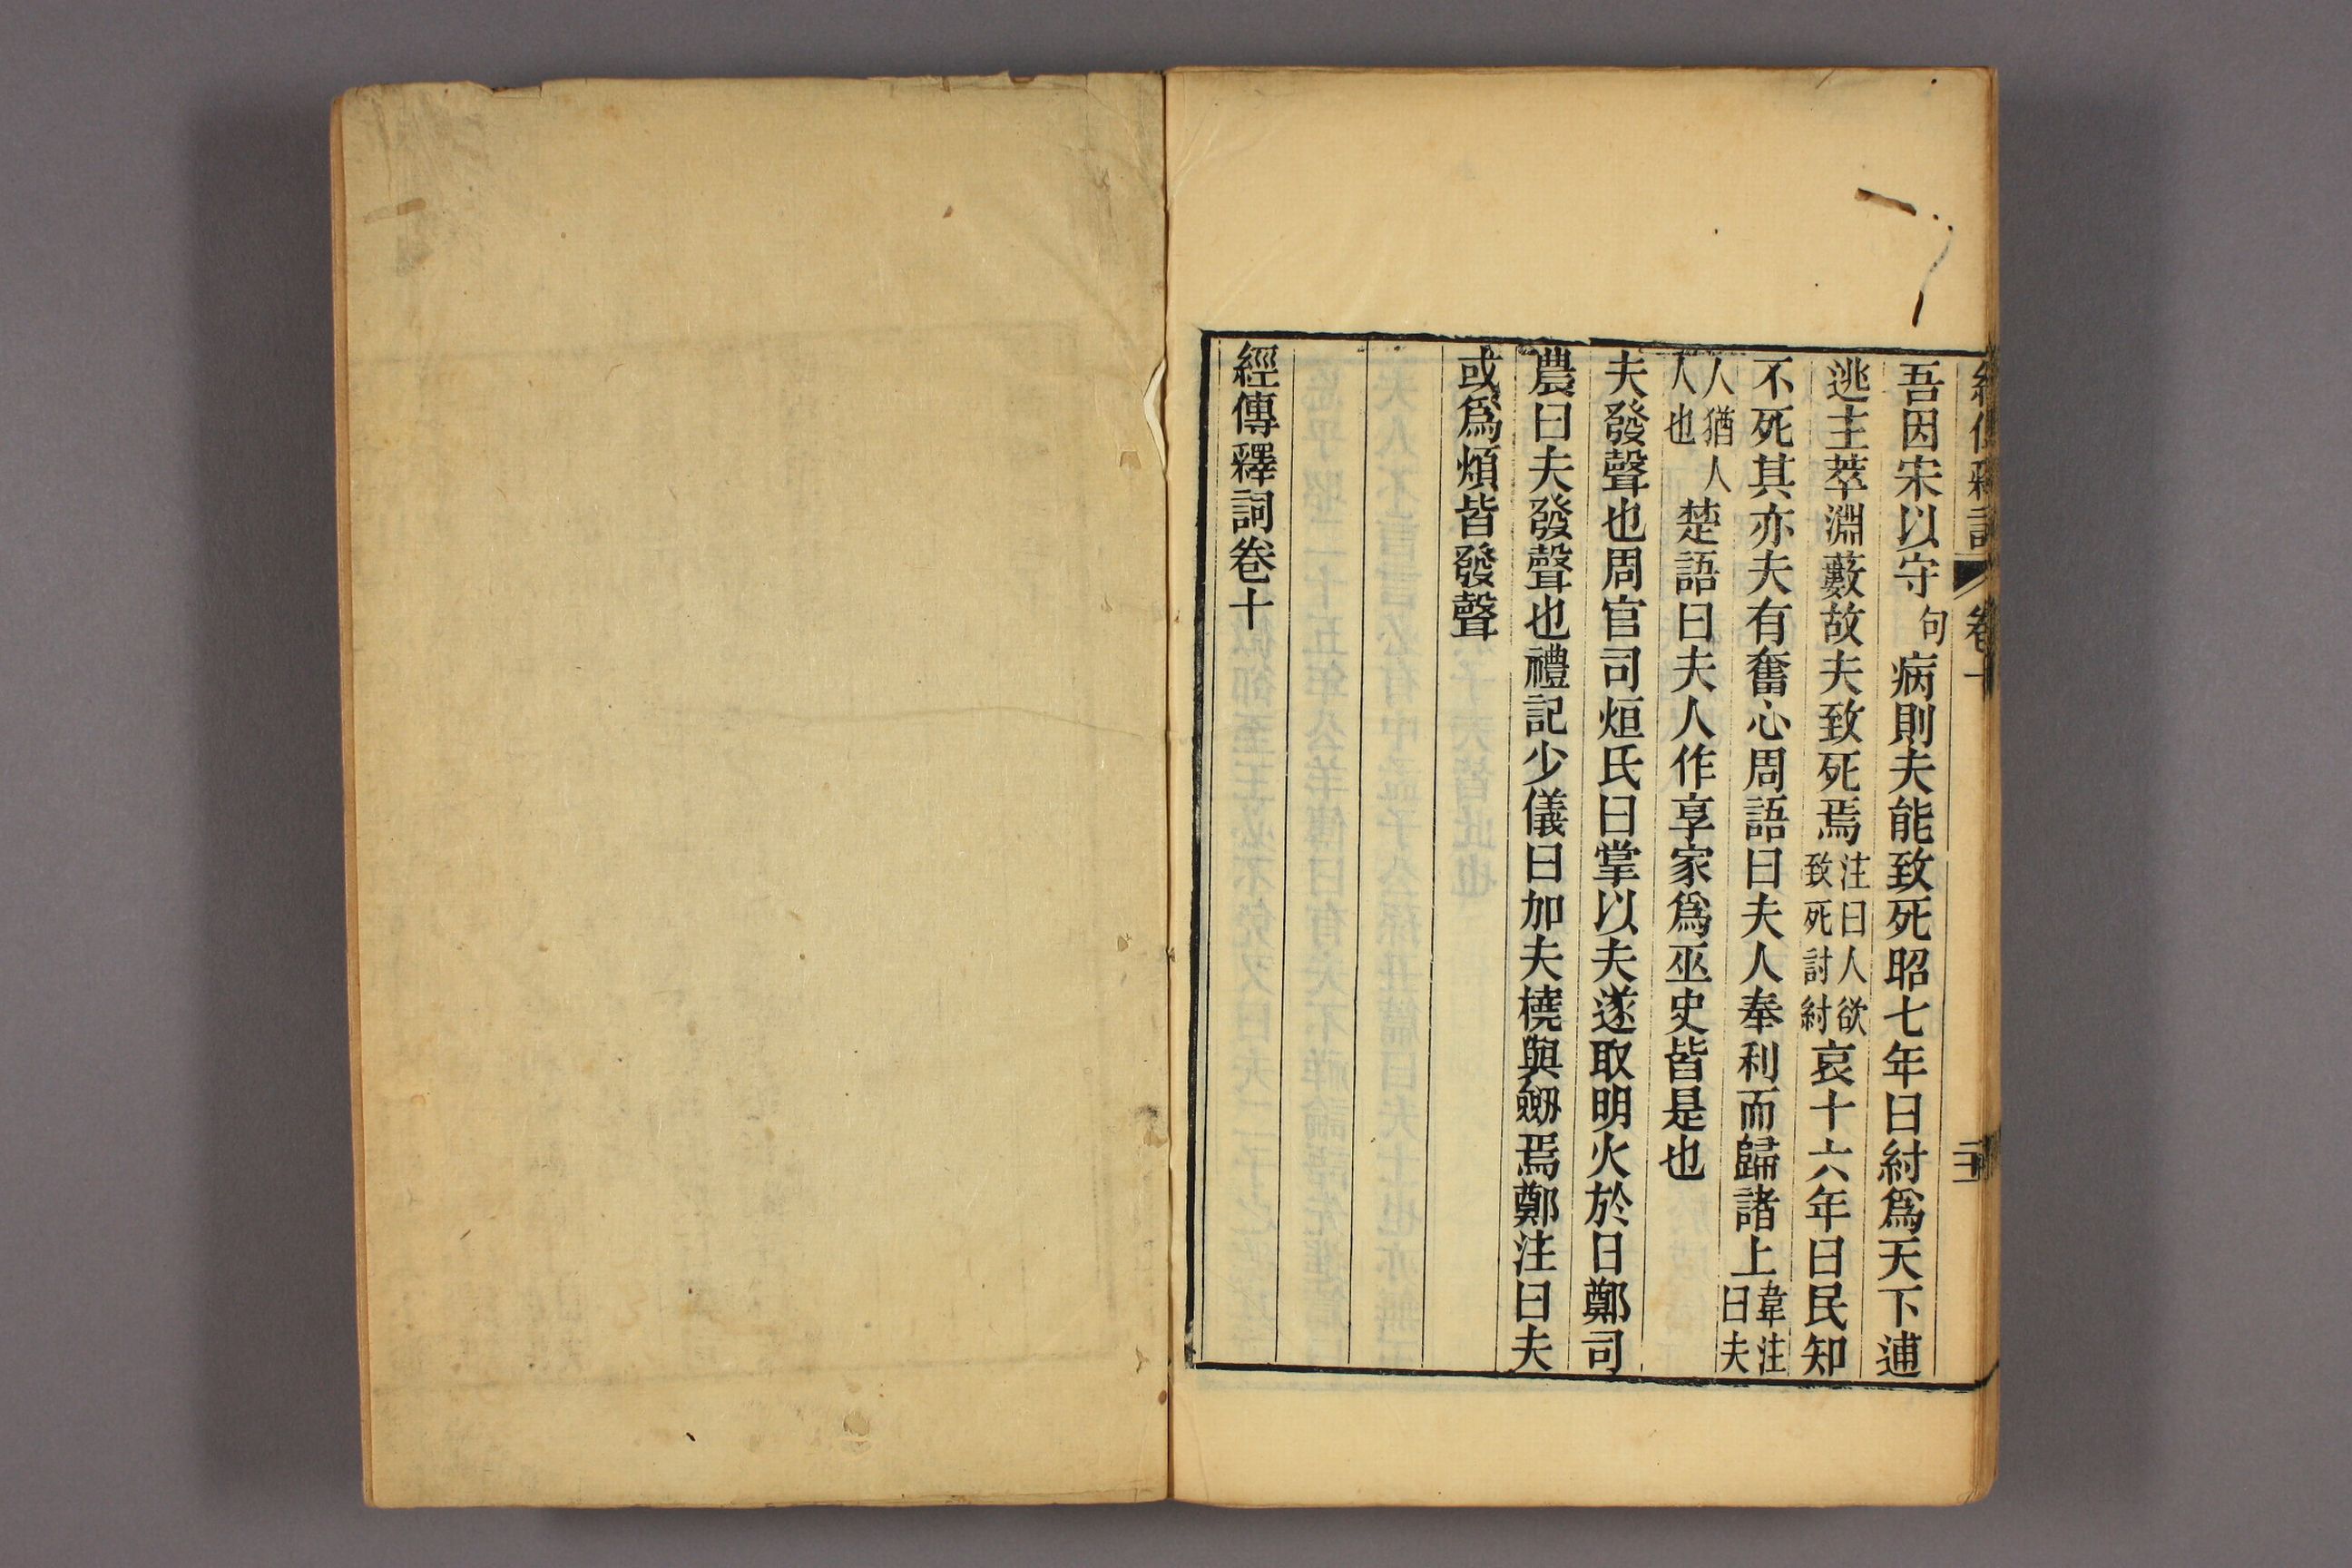 經傳釋詞 卷十
吾因宋以守句病則夫能致死昭七年曰紂爲天下逋
逃主萃淵藪故夫致死焉注曰人欲致死討紂哀十六年曰民知
不死其亦夫有奮心周語曰夫人奉利而歸諸上韋注曰夫
人猶人人也楚語曰夫人作享家爲巫史皆是也
夫發聲也周官司烜氏曰掌以夫遂取明火於日鄭司
農曰夫發聲也禮記少儀曰加夫橈與劒焉鄭注曰夫
或爲煩皆發聲
經傳釋詞卷十